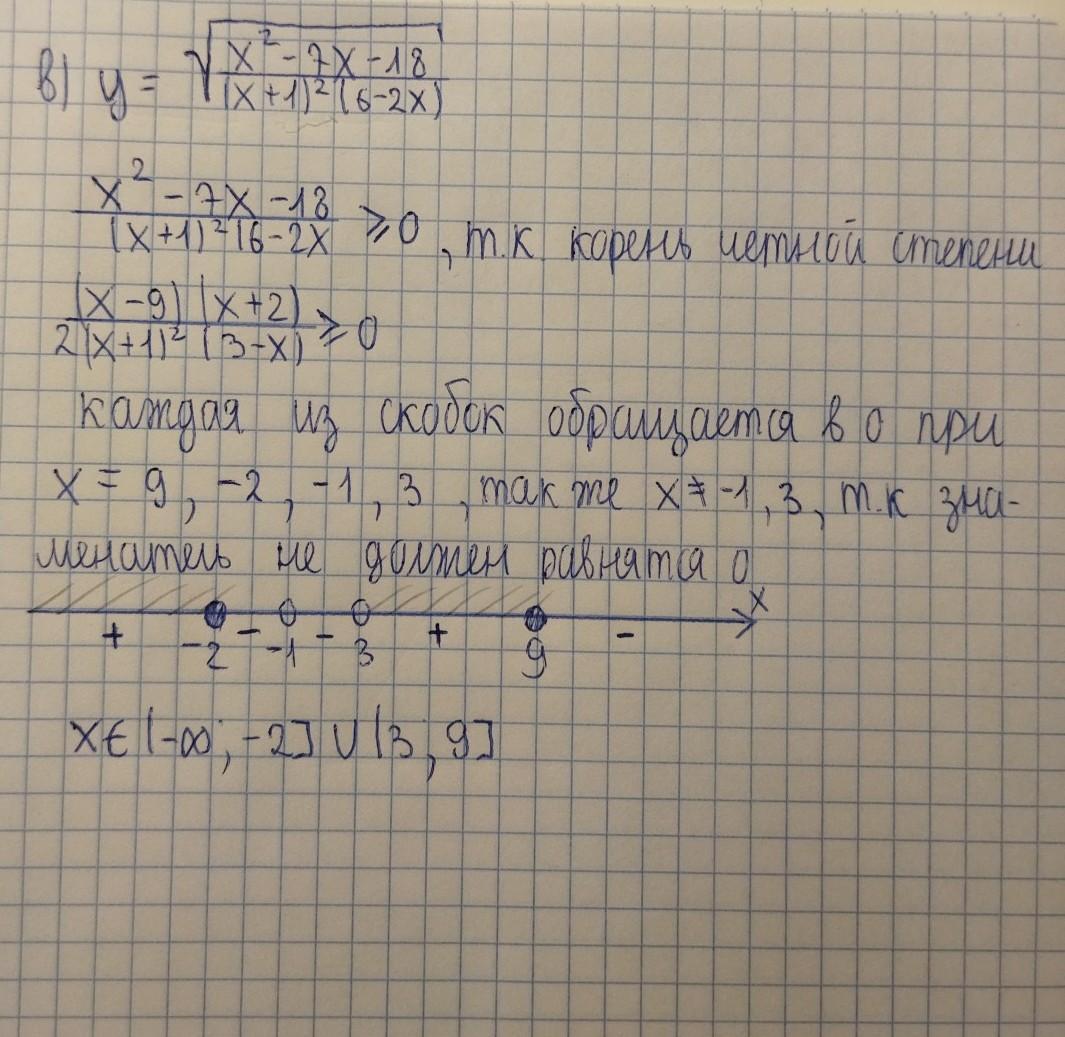 в) y = √((x² - 7x - 18)/((x+1)²(6-2x)))
(x² - 7x - 18)/((x+1)²(6-2x) ≥ 0, т.к корень четной степени
((x-9)(x+2))/(2(x+1)²(3-x)) ≥ 0
каждая из скобок обращается в 0 при
x = 9, -2, -1, 3, так же x ≠ -1, 3, т.к зна-
менатель не должен равнятся 0
x
+ - - + -
-2 -1 3 9
x ∈ (-∞; -2] ∪ (3; 9]